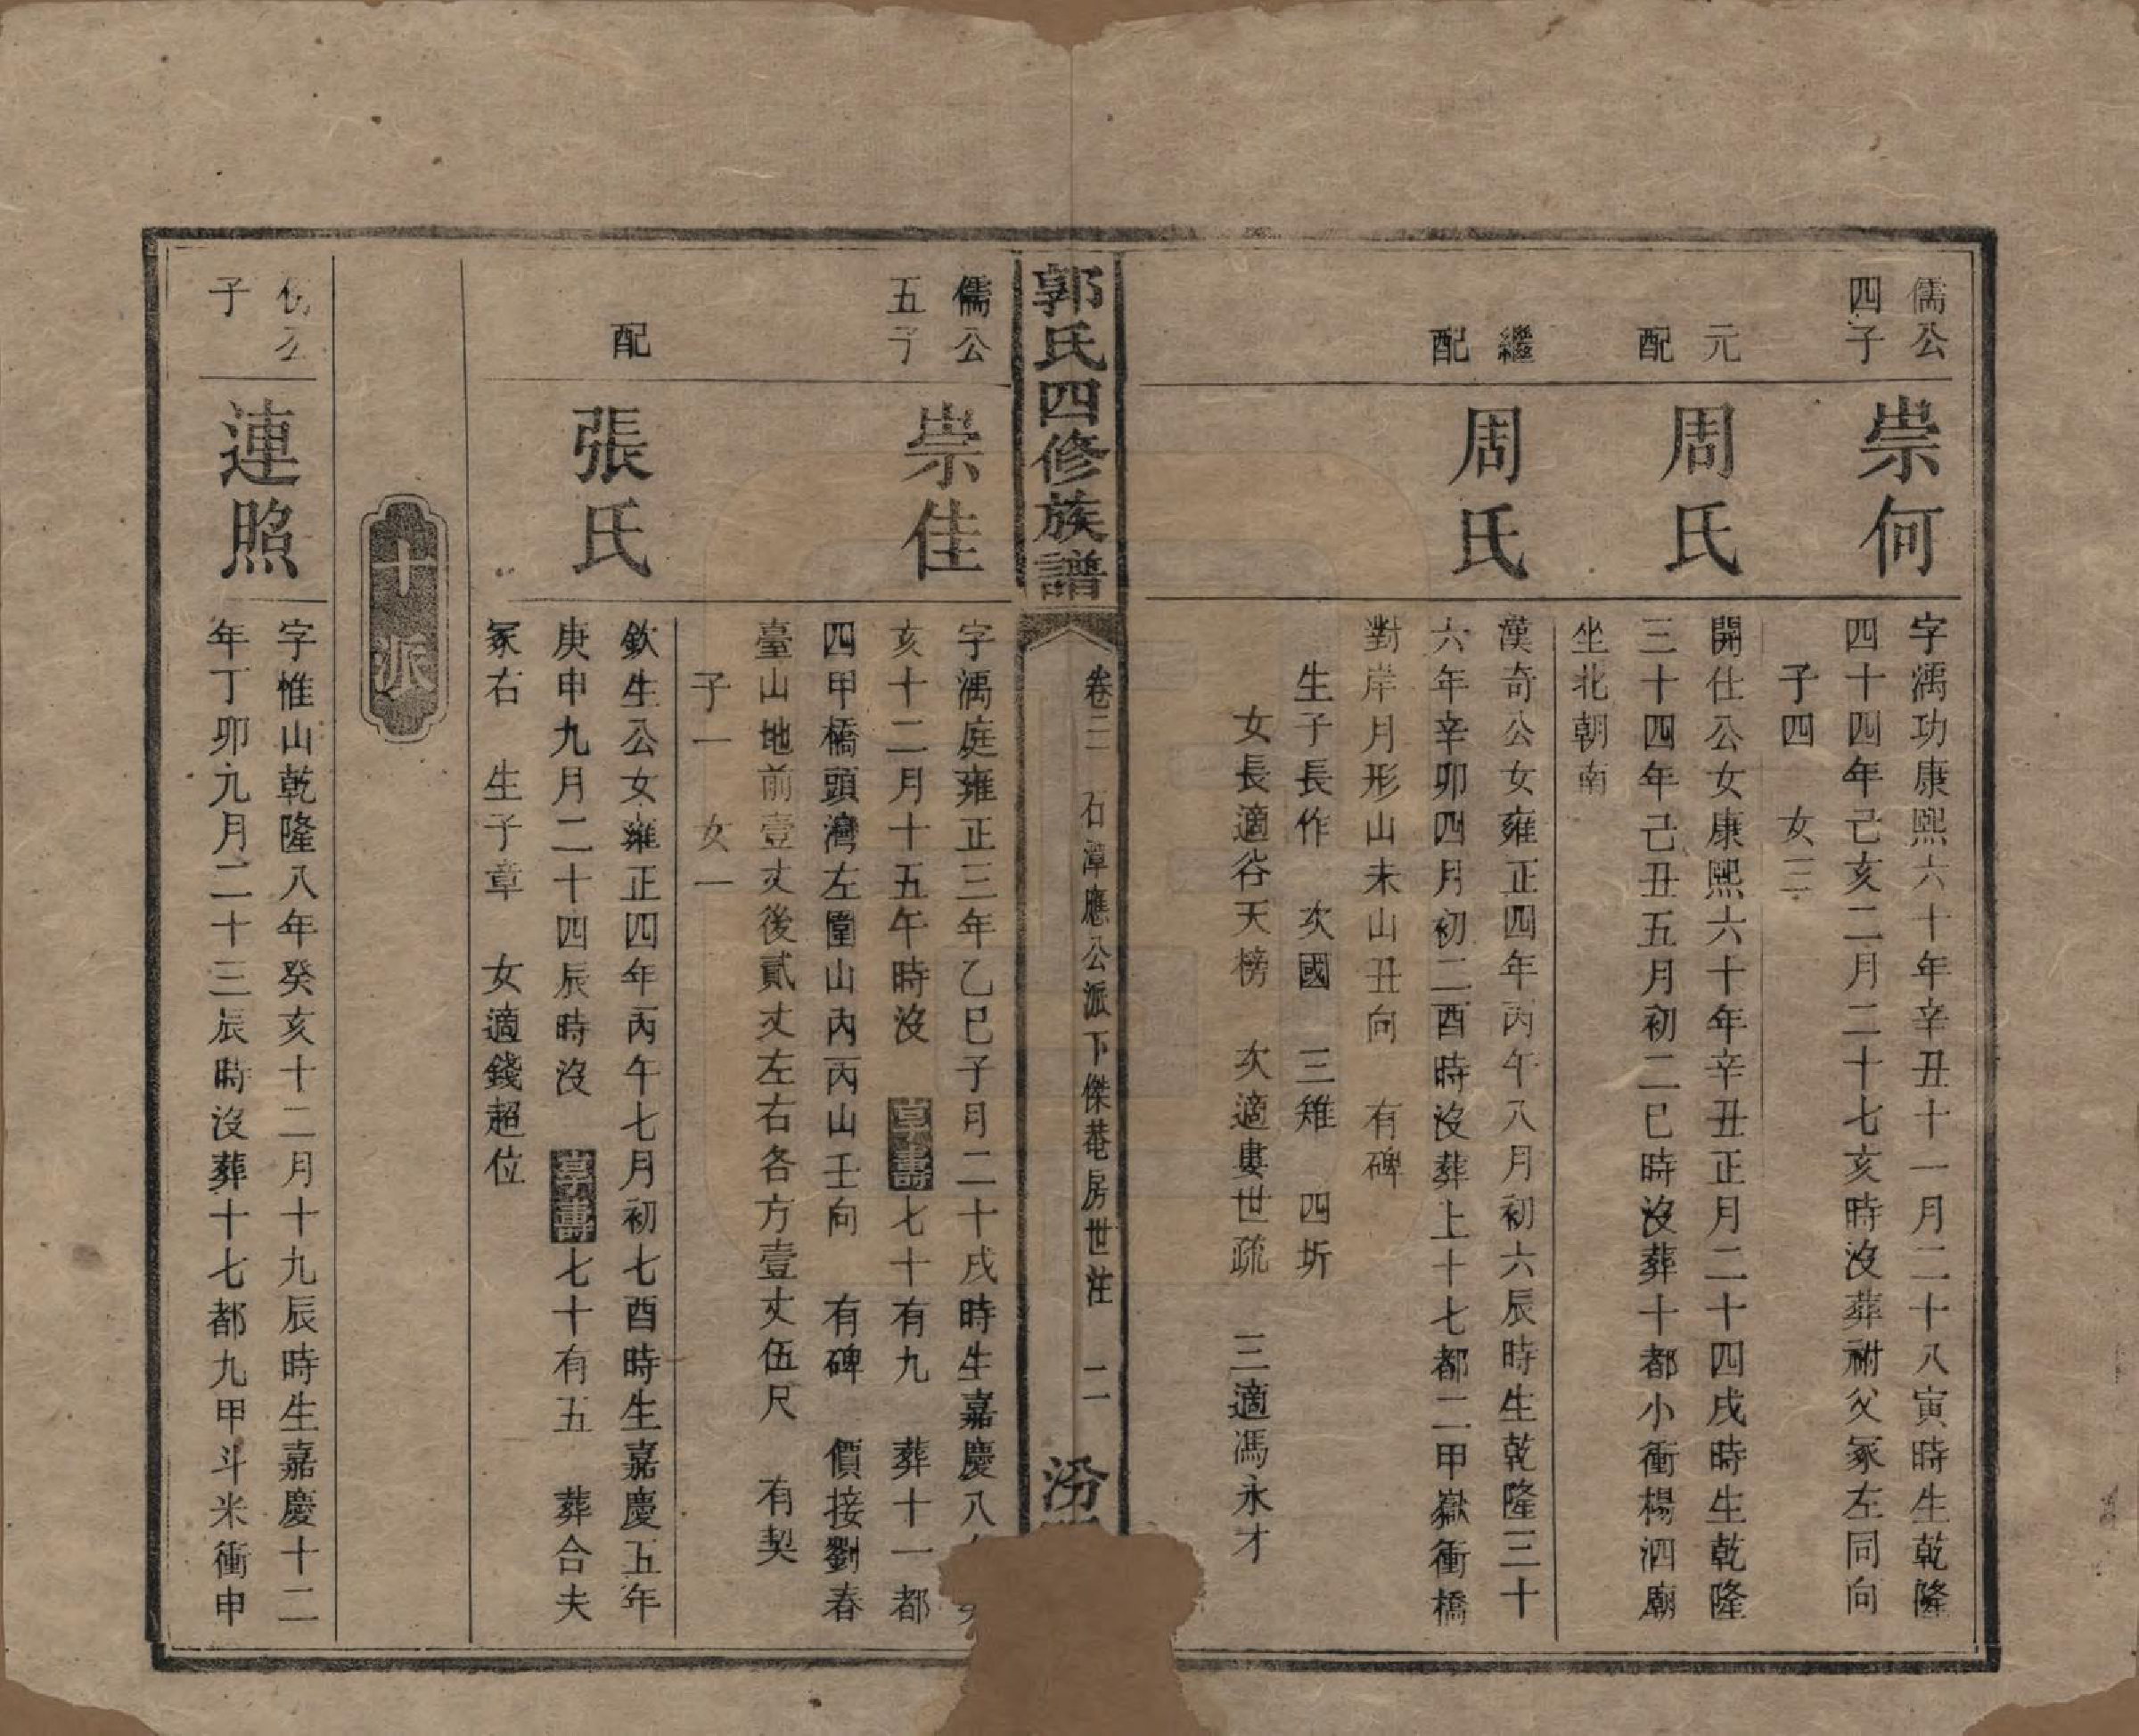 儒公
四子
崇何
字濡功康熙六十年辛丑十一月二十八寅時生乾隆
四十四年己亥二月二十七亥時沒葬祔父冢左同向
子四 女三
元
配
周氏
開仕公女康熙六十年辛丑正月二十四戌時生乾隆
三十四年己丑五月初二巳時沒葬十都小衝楊泗廟
坐北朝南
繼
配
周氏
漢奇公女雍正四年丙午八月初六辰時生乾隆三十
六年辛卯四月初二酉時沒葬上十七都二甲嶽衝橋
對岸月形山未山丑向 有碑
生子長作 次國 三雉 四圻
女長適谷天榜 次適婁世疏 三適馮永才
郭氏四修族譜
卷三 石潭應公派下傑菴房世注 二
汾
儒公
五子
崇佳
字濡庭雍正三年乙巳子月二十戌時生嘉慶八
亥十二月十五午時沒 享壽七十有九 葬十一都
四甲橋頭灣左圍山內丙山壬向 有碑 價接劉春
臺山地前壹丈後貳丈左右各方壹丈伍尺 有契
子一 女一
配
張氏
欽生公女雍正四年丙午七月初七酉時生嘉慶五年
庚申九月二十四辰時沒 享壽七十有五 葬合夫
冢右 生子章 女適錢超位
十派
公
子
連照
字惟山乾隆八年癸亥十二月十九辰時生嘉慶十二
年丁卯九月二十三辰時沒葬十七都九甲斗米衝申